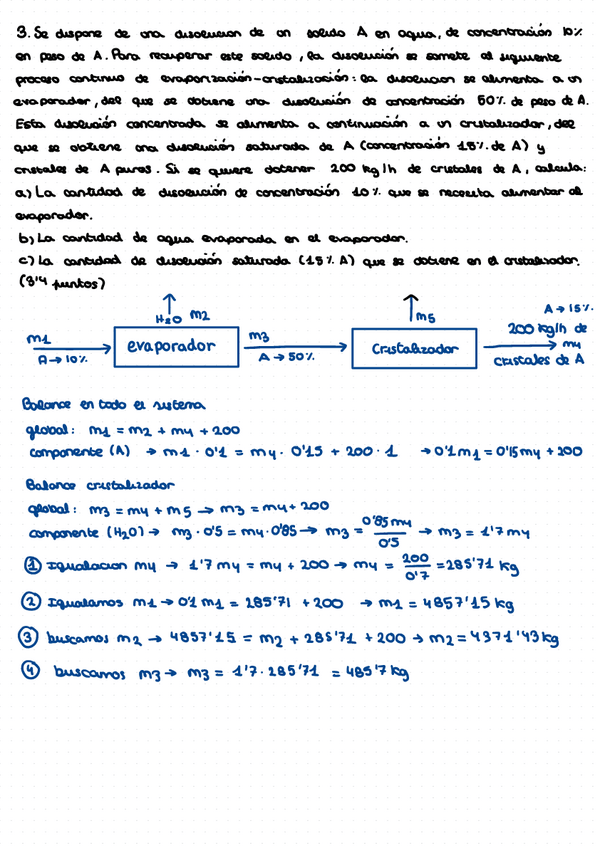 3. Se dispone de una disolución de un solido A en agua, de concentración 10%
en peso de A. Para recuperar este solido, la disolución se somete al siguiente
proceso continuo de evaporización-cristalización: la disolucion se alimenta a un
evaporador, del que se obtiene una disolución de concentración 50% de peso de A.
Esta disolución concentrada se alimenta a continuación a un cristalizador, del
que se obtiene una disolución saturada de A (concentración 15% de A) y
cristales de A puros. Si se quiere obtener 200 kg/h de cristales de A, calcula:
a) La cantidad de disolución de concentración 10% que se necesita alimentar al
evaporador.
b) La cantidad de agua evaporada en el evaporador.
c) La cantidad de disolución saturada (15% A) que se obtiene en el cristalizador.
(3'4 puntos)
H2O m2
m5
A → 15%
m1
A → 10%
evaporador
m3
A → 50%
Cristalizador
200 kg/h de
m4
cristales de A
Balance en todo el sistema
global: m1 = m2 + m4 + 200
componente (A) → m1 · 0'1 = m4 · 0'15 + 200 · 1 → 0'1 m1 = 0'15 m4 + 200
Balance cristalizador
global: m3 = m4 + m5 → m3 = m4 + 200
componente (H2O) → m3 · 0'5 = m4 · 0'85 → m3 = 0'85 m4 / 0'5 → m3 = 1'7 m4
① Igualacion m4 → 1'7 m4 = m4 + 200 → m4 = 200 / 0'7 = 285'71 kg
② Igualamos m1 → 0'1 m1 = 285'71 + 200 → m1 = 4857'15 kg
③ buscamos m2 → 4857'15 = m2 + 285'71 + 200 → m2 = 4371'43 kg
④ buscamos m3 → m3 = 1'7 · 285'71 = 485'7 kg